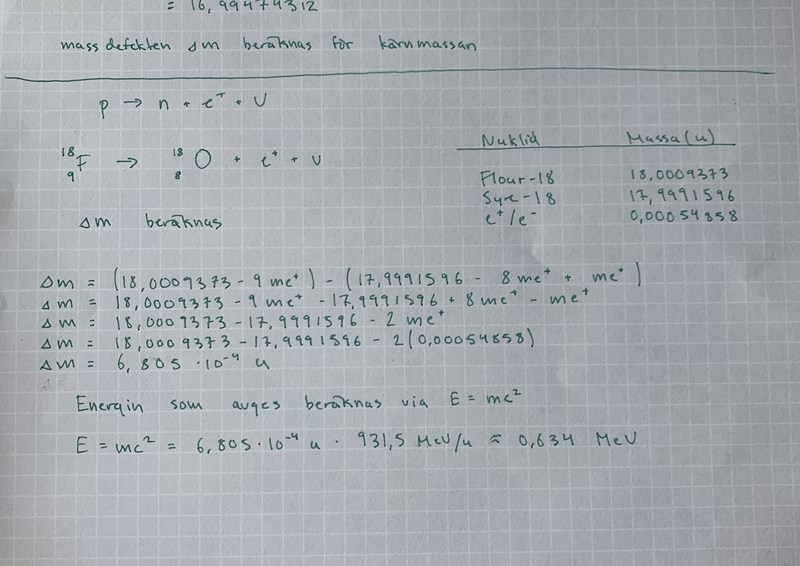 = 16,99474312
mass defekten Δm beräknas för kärnmassan
p → n + e⁺ + ν
¹⁸₉F → ¹⁸₈O + e⁺ + ν
Δm beräknas
Nuklid Massa (u)
Flour-18 18,0009373
Syre-18 17,9991596
e⁺/e⁻ 0,00054858
Δm = (18,0009373 - 9 me⁺) - (17,9991596 - 8 me⁺ + me⁺)
Δm = 18,0009373 - 9 me⁺ - 17,9991596 + 8 me⁺ - me⁺
Δm = 18,0009373 - 17,9991596 - 2 me⁺
Δm = 18,0009373 - 17,9991596 - 2(0,00054858)
Δm = 6,805 · 10⁻⁴ u
Energin som avges beräknas via E = mc²
E = mc² = 6,805 · 10⁻⁴ u · 931,5 MeV/u ≈ 0,634 MeV